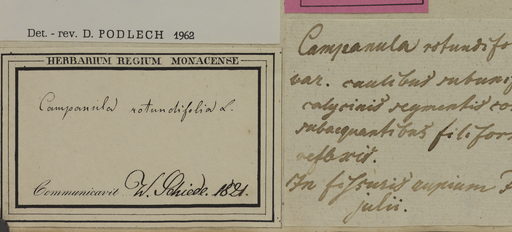 Det. - rev. D. PODLECH 1962
HERBARIUM REGIUM MONACENSE
Campanula rotundifolia L.
Communicavit W. Schiede. 1821.
Campanula rotundifo
var. caulibus subunif
calycinis segmentis co
subaequantibus filiform
reflexis.
In fissuris rupium F
julii.